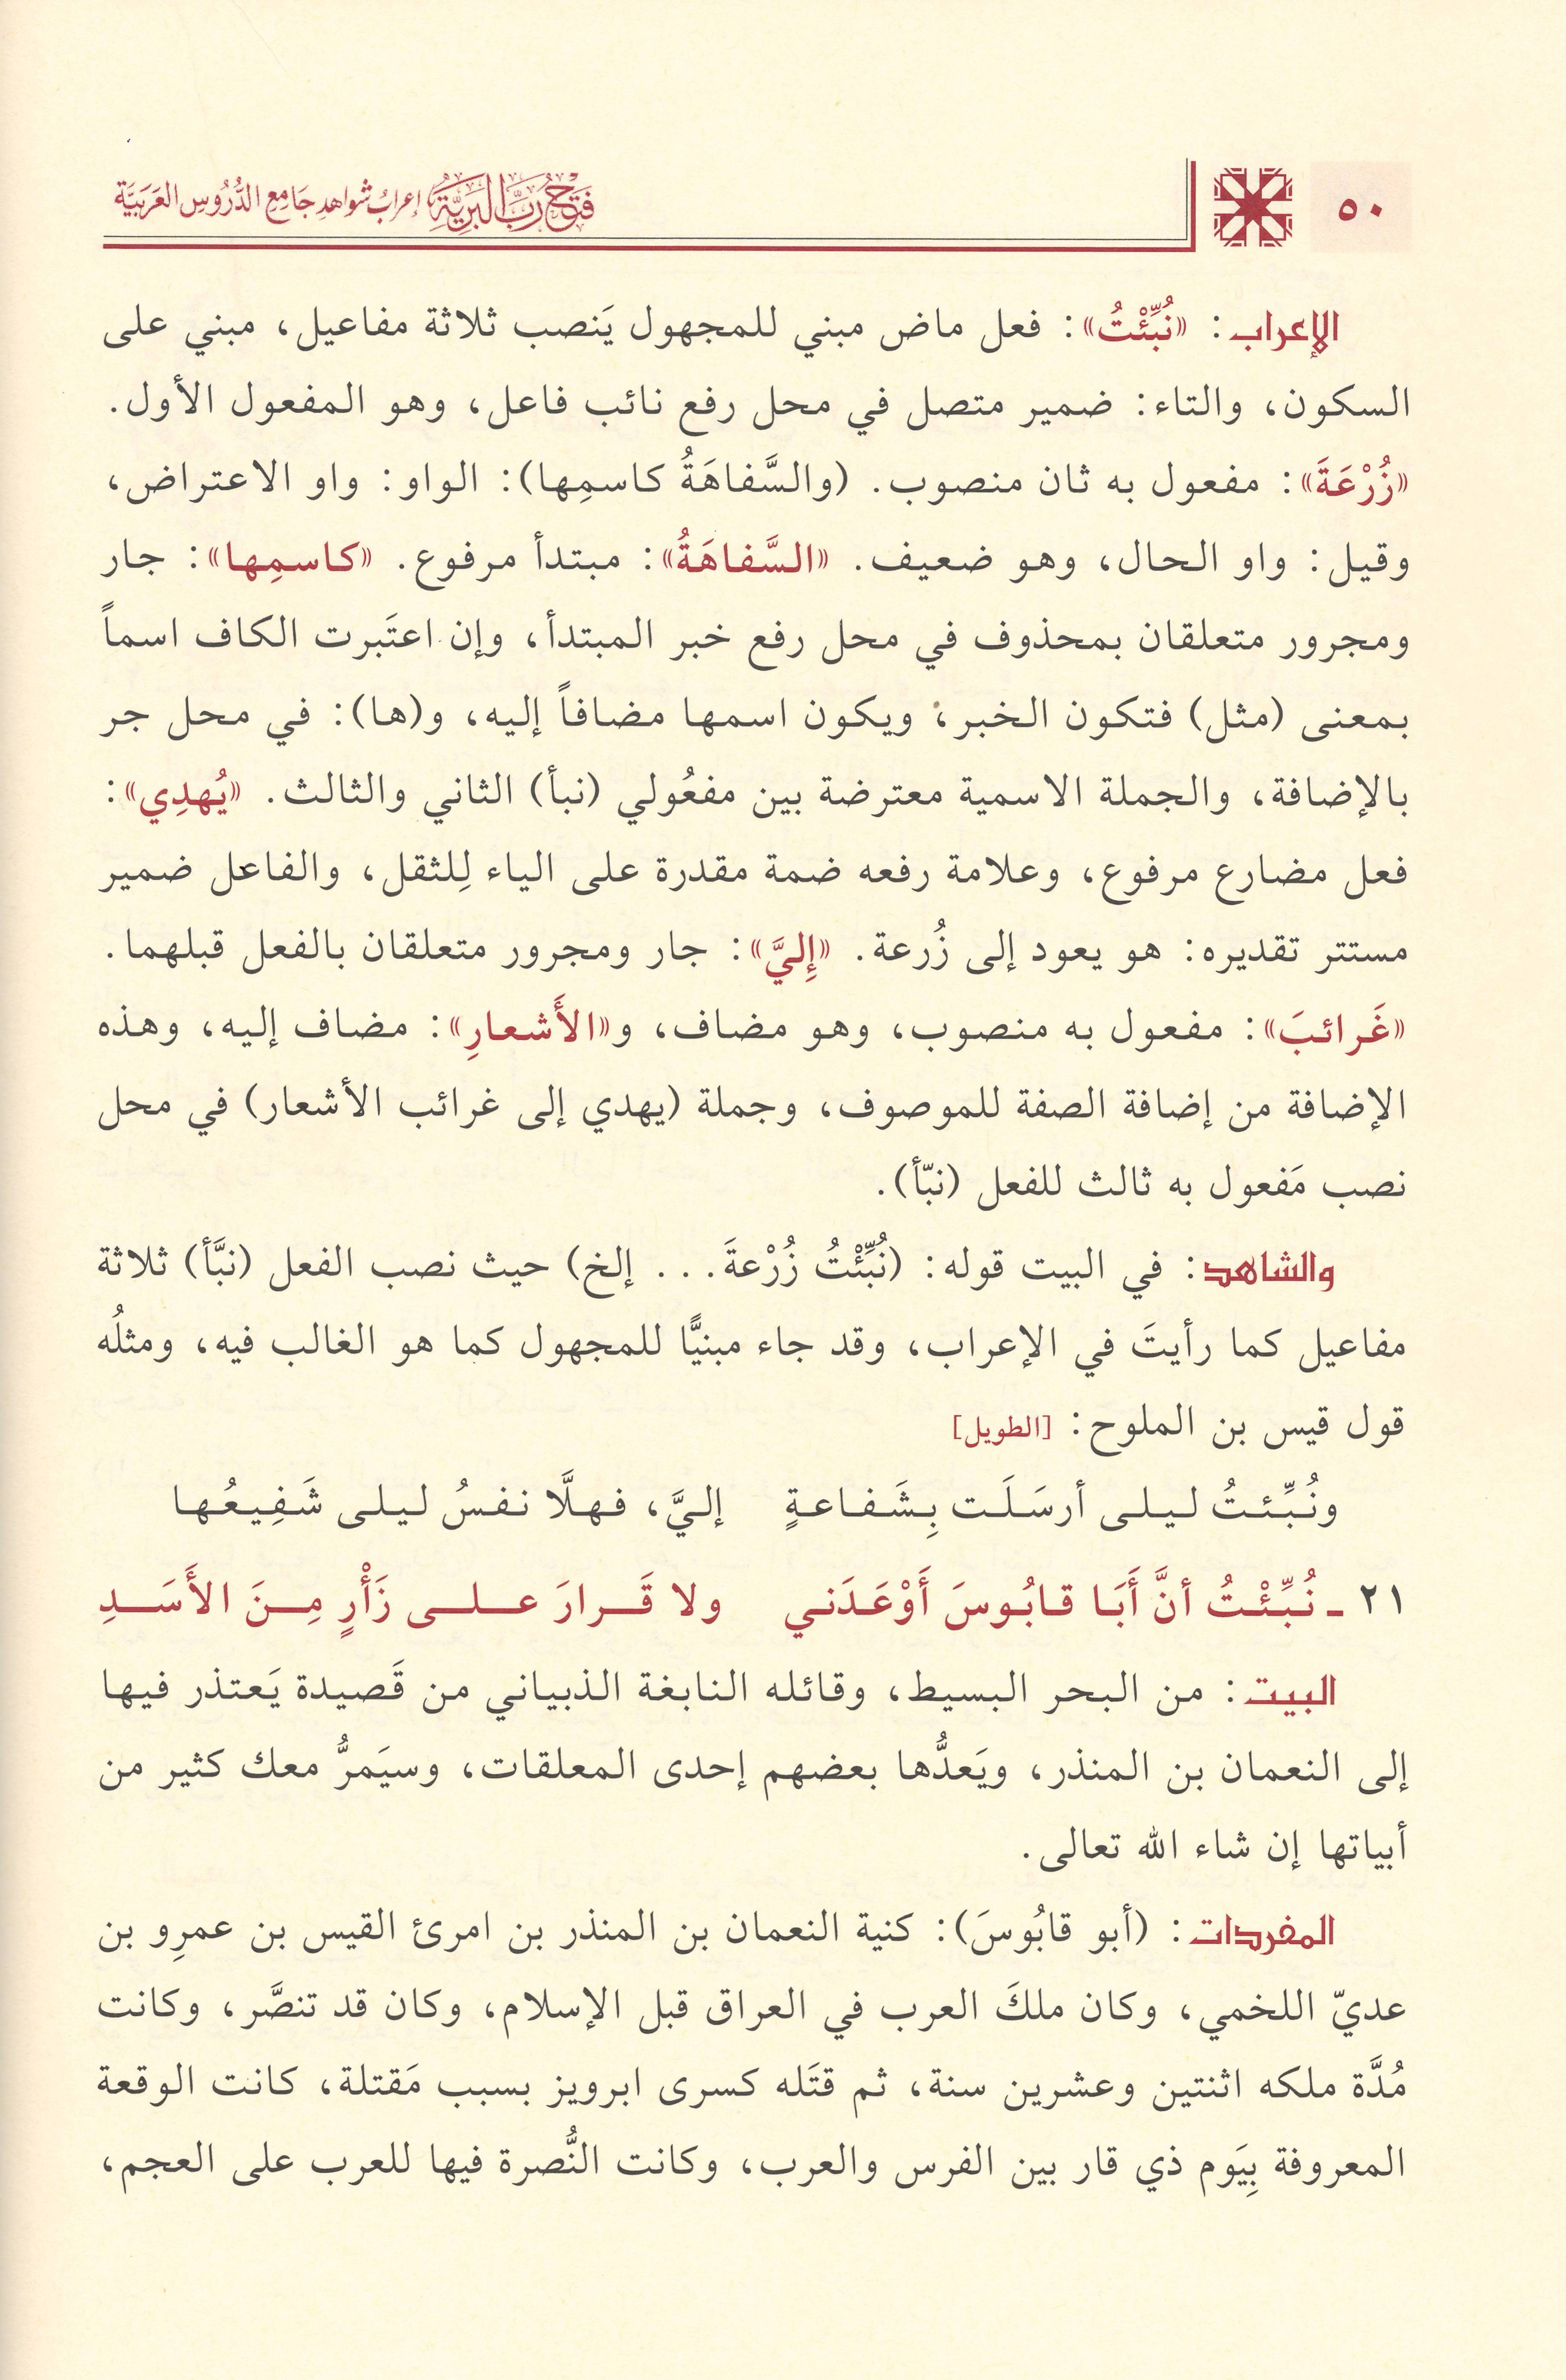 ٥٠
فَتْحُ رَبِّ البَرِيَّةِ إعرابُ شواهدِ جَامِعِ الدُّرُوسِ العَرَبيَّة
الإعراب: «نُبِّئْتُ»: فعل ماض مبني للمجهول يَنصب ثلاثة مفاعيل، مبني على
السكون، والتاء: ضمير متصل في محل رفع نائب فاعل، وهو المفعول الأول.
«زُرْعَةَ»: مفعول به ثان منصوب. (والسَّفاهَةُ كاسمِها): الواو: واو الاعتراض،
وقيل: واو الحال، وهو ضعيف. «السَّفاهَةُ»: مبتدأ مرفوع. «كاسمِها»: جار
ومجرور متعلقان بمحذوف في محل رفع خبر المبتدأ، وإن اعتَبرت الكاف اسماً
بمعنى (مثل) فتكون الخبر، ويكون اسمها مضافاً إليه، و(ها): في محل جر
بالإضافة، والجملة الاسمية معترضة بين مفعُولي (نبأ) الثاني والثالث. «يُهدِي»:
فعل مضارع مرفوع، وعلامة رفعه ضمة مقدرة على الياء لِلثقل، والفاعل ضمير
مستتر تقديره: هو يعود إلى زُرعة. «إِليَّ»: جار ومجرور متعلقان بالفعل قبلهما.
«غَرائبَ»: مفعول به منصوب، وهو مضاف، و«الأَشعارِ»: مضاف إليه، وهذه
الإضافة من إضافة الصفة للموصوف، وجملة (يهدي إلى غرائب الأشعار) في محل
نصب مَفعول به ثالث للفعل (نبّأ).
والشاهد: في البيت قوله: (نُبِّئْتُ زُرْعةَ... إلخ) حيث نصب الفعل (نبَّأ) ثلاثة
مفاعيل كما رأيتَ في الإعراب، وقد جاء مبنيًّا للمجهول كما هو الغالب فيه، ومثلُه
قول قيس بن الملوح: [الطويل]
ونُبِّئتُ ليلى أرسَلَت بِشَفاعةٍ إليَّ، فهلَّا نفسُ ليلى شَفِيعُها
٢١ ـ نُبِّئْتُ أنَّ أَبَا قابُوسَ أَوْعَدَني ولا قَرارَ على زَأْرٍ مِنَ الأَسَدِ
البيت: من البحر البسيط، وقائله النابغة الذبياني من قَصيدة يَعتذر فيها
إلى النعمان بن المنذر، ويَعدُّها بعضهم إحدى المعلقات، وسيَمرُّ معك كثير من
أبياتها إن شاء الله تعالى.
المفردات: (أبو قابُوسَ): كنية النعمان بن المنذر بن امرئ القيس بن عمرِو بن
عديّ اللخمي، وكان ملكَ العرب في العراق قبل الإسلام، وكان قد تنصَّر، وكانت
مُدَّة ملكه اثنتين وعشرين سنة، ثم قتَله كسرى ابرويز بسبب مَقتلة، كانت الوقعة
المعروفة بِيَوم ذي قار بين الفرس والعرب، وكانت النُّصرة فيها للعرب على العجم،